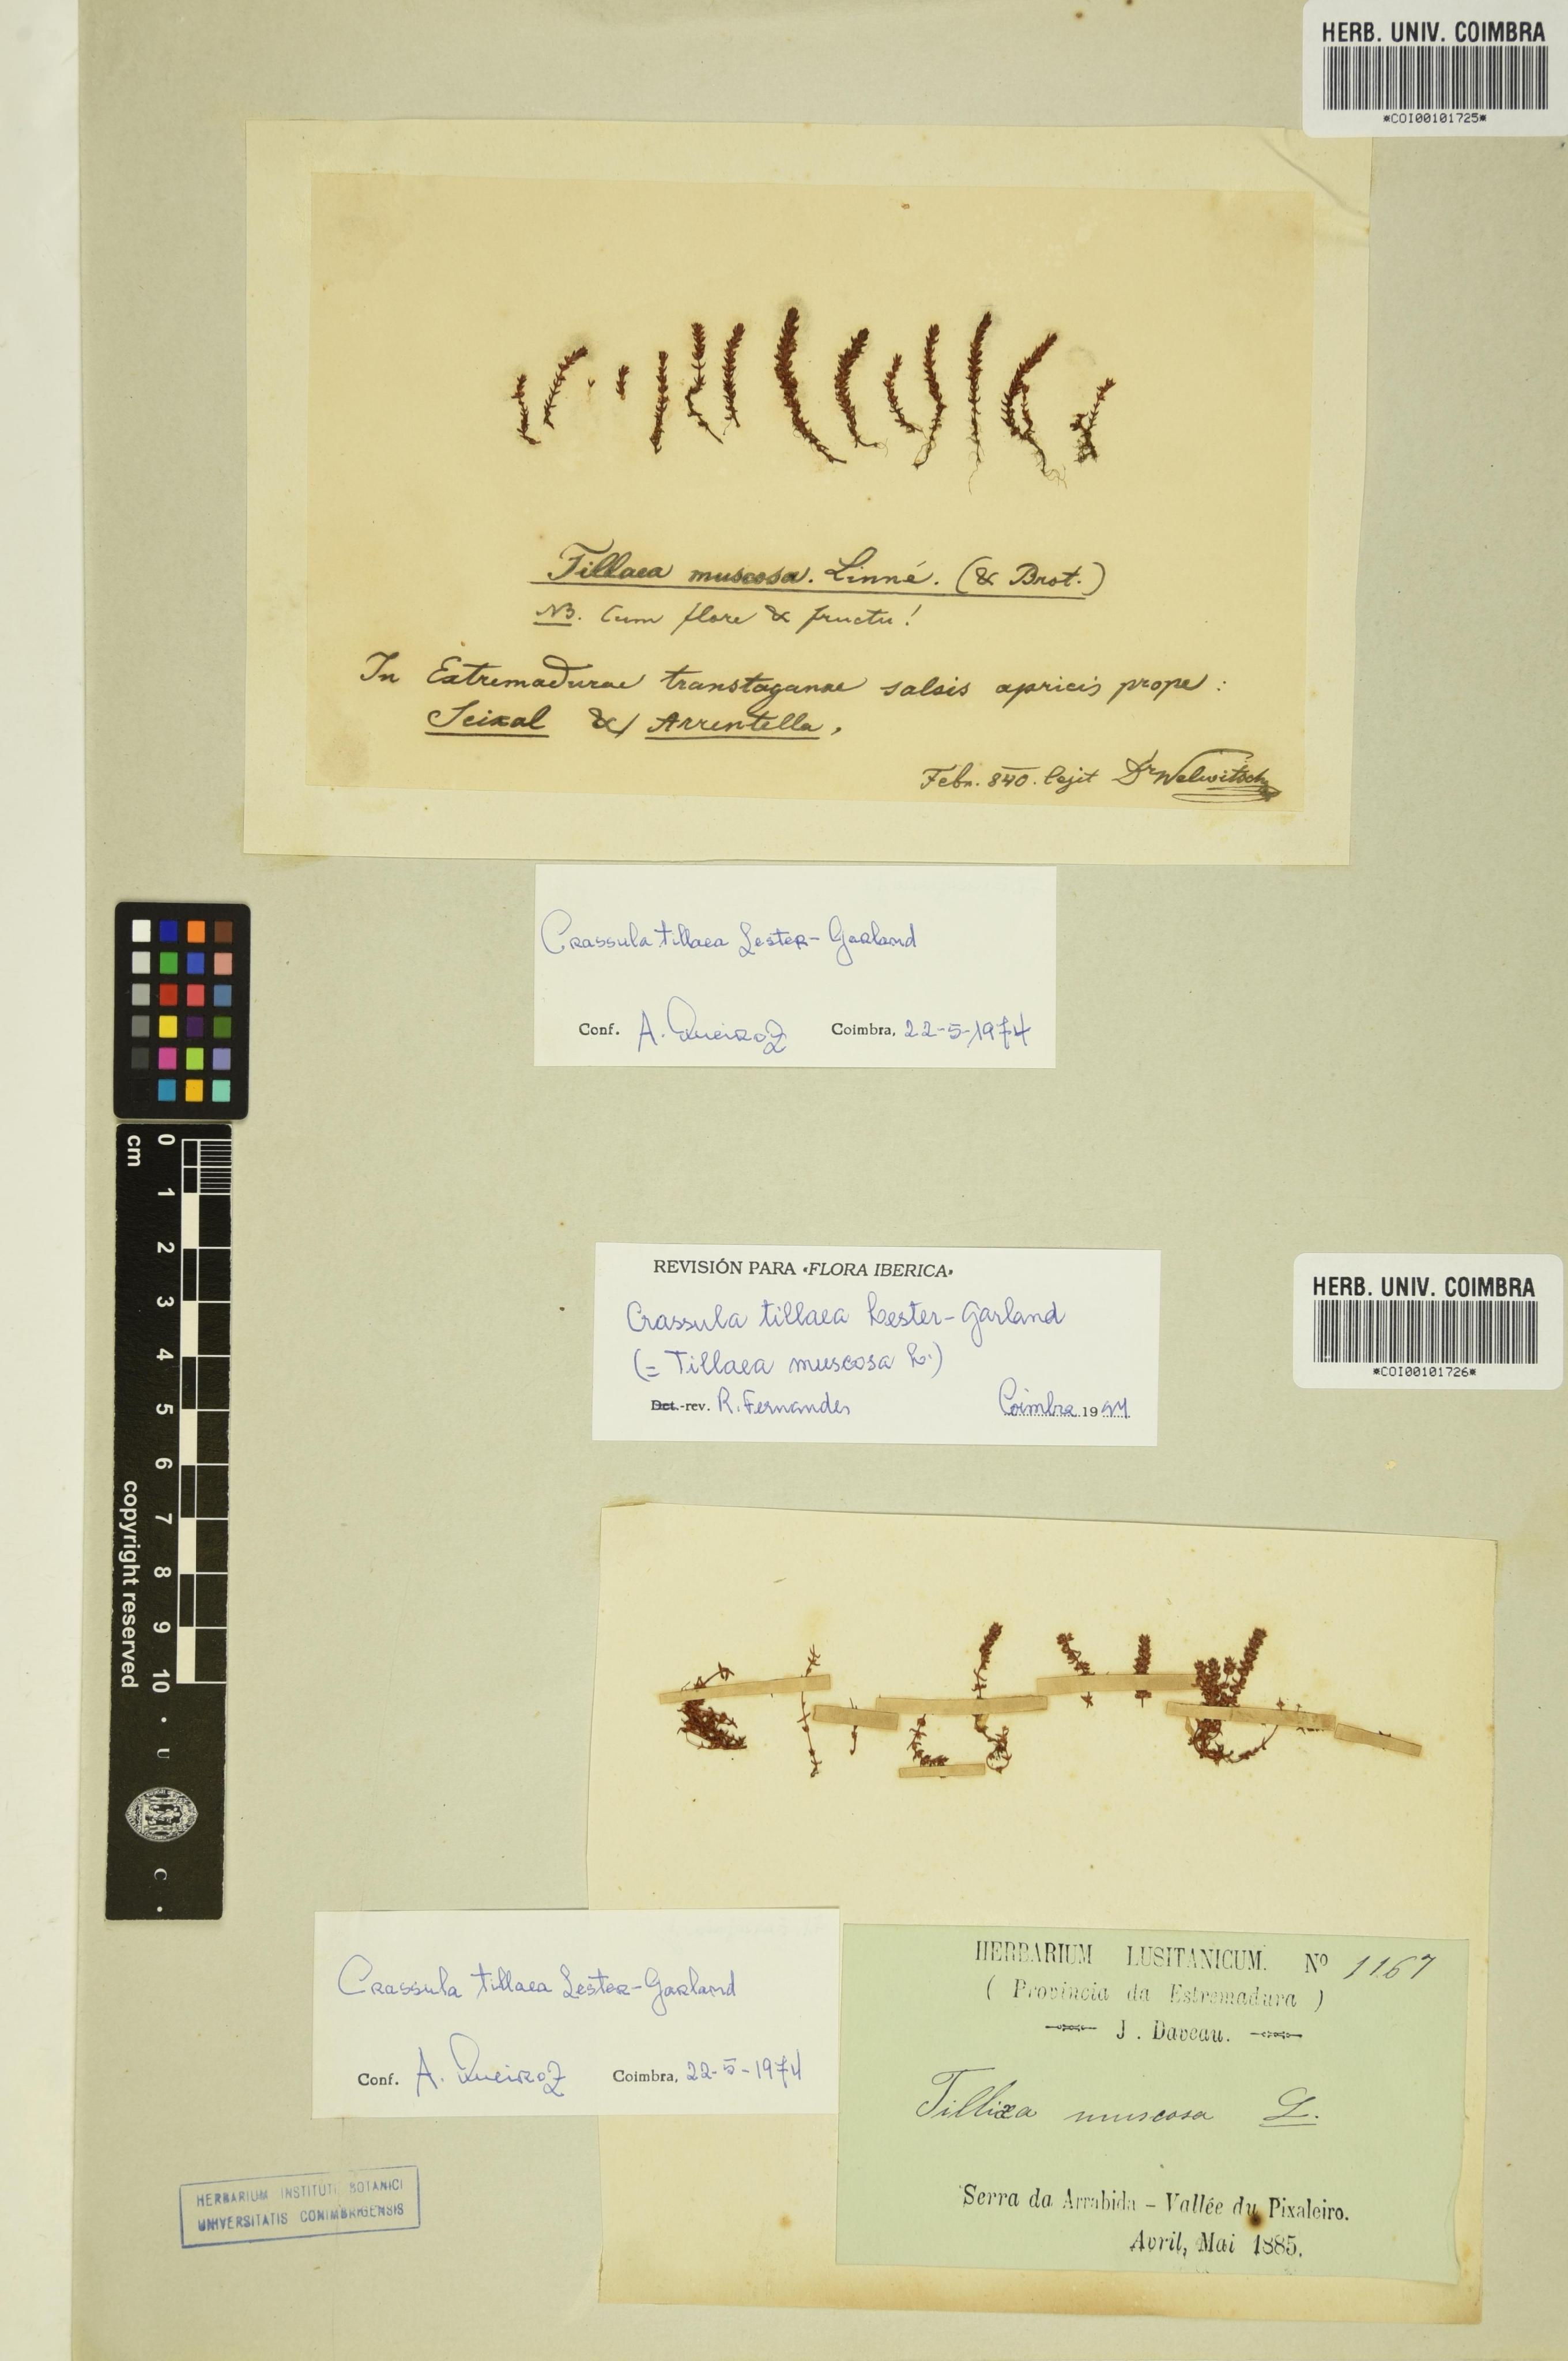 HERB. UNIV. COIMBRA
*COI00101725*
Tillaea muscosa. Linné. (& Brot.)
NB. Cum flore & fructu!
In Extremadurae transtaganae salsis apricis prope:
Seixal & Arrentella,
Febr. 840. legit Dr Welwitsch
Crassula tillaea Lester-Garland
Conf. A. Queiroz Coimbra, 22-5-1974
cm
0
1
2
3
4
5
6
7
8
9
10
copyright reserved
U
C
REVISIÓN PARA «FLORA IBERICA»
Crassula tillaea Lester-Garland
(= Tillaea muscosa L.)
Det.-rev. R. Fernandes Coimbra 19
HERB. UNIV. COIMBRA
*COI00101726*
HERBARIUM LUSITANICUM. Nº 1167
( Provincia da Estremadura )
J. Daveau.
Tillæa muscosa L.
Serra da Arrabida – Vallée du Pixaleiro.
Avril, Mai 1885.
Crassula tillaea Lester-Garland
Conf. A. Queiroz Coimbra, 22-5-1974
HERBARIUM INSTITUTI BOTANICI
UNIVERSITATIS CONIMBRIGENSIS